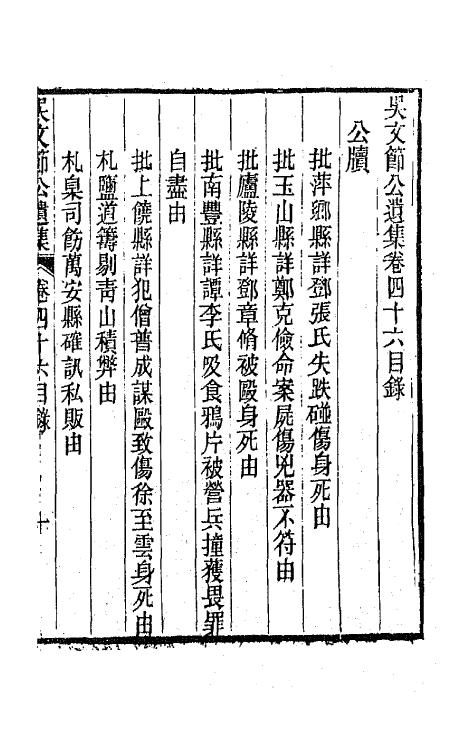 吳文節公遺集卷四十六目錄
公牘
批萍鄉縣詳鄧張氏失跌碰傷身死由
批玉山縣詳鄭克儉命案屍傷兇器不符由
批廬陵縣詳鄧章脩被毆身死由
批南豐縣詳譚李氏吸食鴉片被營兵撞獲畏罪
自盡由
批上饒縣詳犯僧普成謀毆致傷徐至雲身死由
札鹽道籌剔靑山積弊由
札臬司飭萬安縣確訊私販由
吳文節公遺集 卷四十六目錄